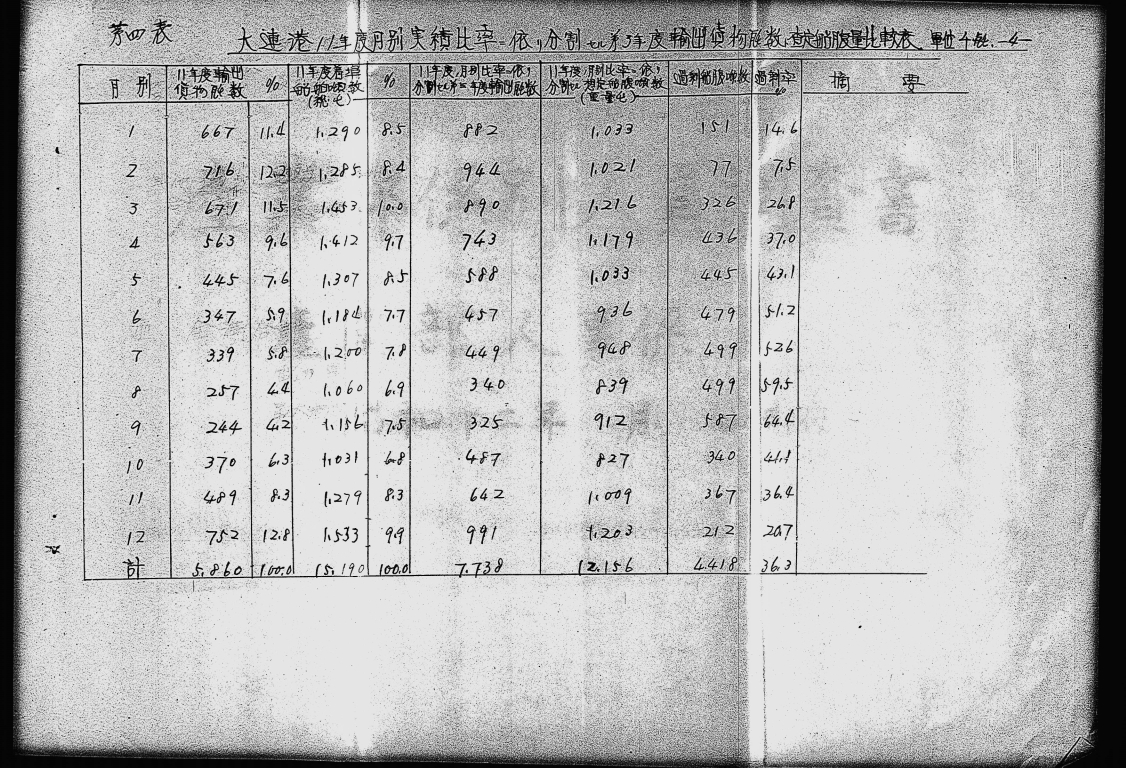 第四表
大連港11年度月別実績比率ニ依リ分割セル第5年度輸出貨物瓲数、査定船腹量比較表 單位千瓲 —4—
月別 11年度輸出貨物瓲数 % 11年度着埠船舶噸数(純屯) % 11年度月別比率ニ依リ分割セル第5年度輸出瓲数 11年度月別比率ニ依リ分割セル想定船腹噸数(重量屯) 過剰船腹噸数 過剰率% 摘要
1 667 11.4 1.290 8.5 882 1.033 151 14.6
2 716 12.2 1.285 8.4 944 1.021 77 7.5
3 671 11.5 1.453 10.0 890 1.216 326 26.8
4 563 9.6 1.412 9.7 743 1.179 436 37.0
5 445 7.6 1.307 8.5 588 1.033 445 43.1
6 347 5.9 1.184 7.7 457 936 479 51.2
7 339 5.8 1.200 7.8 449 948 499 52.6
8 257 4.4 1.060 6.9 340 839 499 59.5
9 244 4.2 1.156 7.5 325 912 587 64.4
10 370 6.3 1.031 6.8 487 827 340 41.1
11 489 8.3 1.279 8.3 642 1.009 367 36.4
12 752 12.8 1.533 9.9 991 1.203 212 20.7
計 5.860 100.0 15.190 100.0 7.738 12.156 4.418 36.3